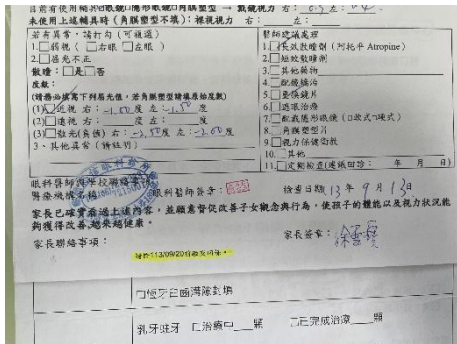 目前有使用輔具□眼鏡□隱形眼鏡□角膜塑型 → 戴鏡視力 右:0.9 左:
未使用上述輔具時(角膜塑型不填):裸視視力 右: 左:
若有異常,請打勾(可複選)
1.□弱視(□右眼 □左眼)
2.□屈光不正
散瞳:□是□否
度數:
(請務必填寫下列屈光值,若角膜塑型請填原始度數)
(1)近視 右:-1.50度 左:-1.50度
(2)□遠視 右: 度 左: 度
(3)散光(負值) 右:-2.50度 左:-2.00度
3、其他異常(請註明)
醫師建議處理
1.□長效散瞳劑(阿托平 Atropine)
2.□短效散瞳劑
3.□其他藥物
4.□配鏡矯治
5.□更換鏡片
6.□遮眼治療
7.□配戴隱形眼鏡(□軟式□硬式)
8.□角膜塑型片
9.□視力保健衛教
10.□其他
11.□定期檢查(建議回診: 年 月 日)
眼科醫師
醫療機構名稱
眼科醫師簽章:
檢查日期 13年 9月 13日
家長已確實看過上述內容,並願意督促改善子女觀念與行為,使孩子的體能以及視力狀況能
夠獲得改善,越來越健康。
家長聯絡事項:
家長簽章:
請於113/09/20前繳交回條。
□恆牙臼齒溝隙封填
乳牙蛀牙 □治療中 顆 □已完成治療 顆